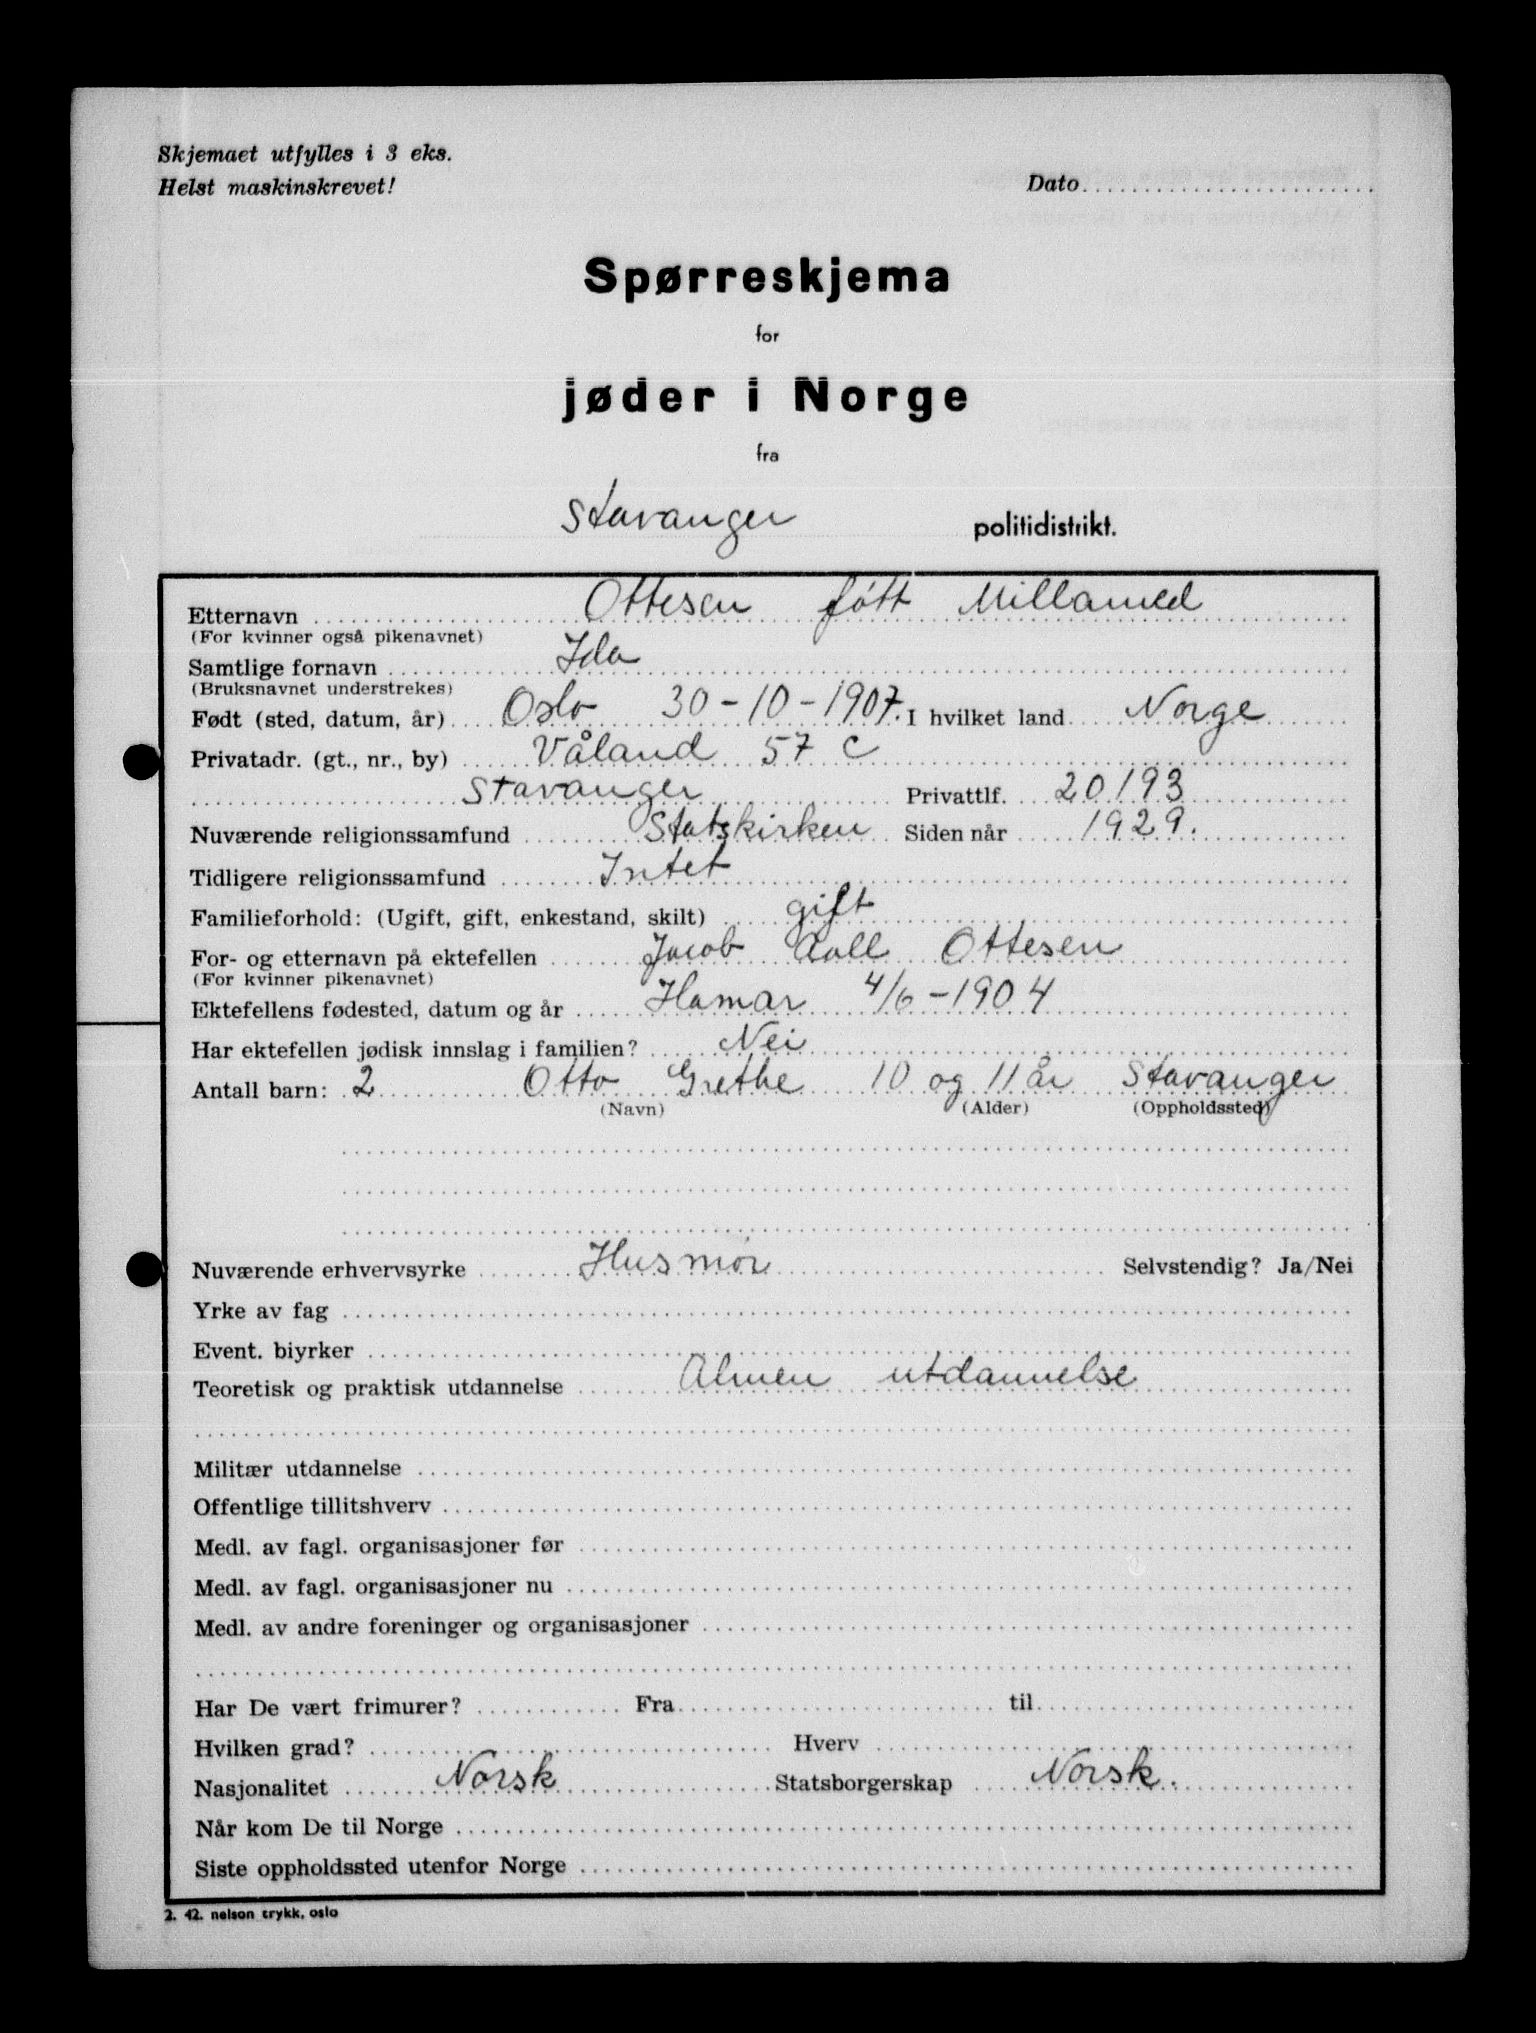 Skjemaet utfylles i 3 eks.
Helst maskinskrevet!
Dato
Spørreskjema
for
jøder i Norge
fra
Stavanger politidistrikt.
Etternavn Ottesen født Millamed
(For kvinner også pikenavnet)
Samtlige fornavn Ida
(Bruksnavnet understrekes)
Født (sted, datum, år) Oslo 30-10-1907. I hvilket land Norge
Privatadr. (gt., nr., by) Våland 57 c
Stavanger Privattlf. 20193
Nuværende religionssamfund Statskirken Siden når 1929.
Tidligere religionssamfund Intet
Familieforhold: (Ugift, gift, enkestand, skilt) gift
For- og etternavn på ektefellen Jacob Aall Ottesen
(For kvinner pikenavnet)
Ektefellens fødested, datum og år Hamar 4/6-1904
Har ektefellen jødisk innslag i familien? Nei
Antall barn: 2 Otto Grethe 10 og 11 år Stavanger
(Navn) (Alder) (Oppholdssted)
Nuværende erhvervsyrke Husmor Selvstendig? Ja/Nei
Yrke av fag
Event. biyrker
Teoretisk og praktisk utdannelse Almen utdannelse
Militær utdannelse
Offentlige tillitshverv
Medl. av fagl. organisasjoner før
Medl. av fagl. organisasjoner nu
Medl. av andre foreninger og organisasjoner
Har De vært frimurer? Fra til
Hvilken grad? Hverv
Nasjonalitet Norsk Statsborgerskap Norsk.
Når kom De til Norge
Siste oppholdssted utenfor Norge
2. 42. nelson trykk, oslo